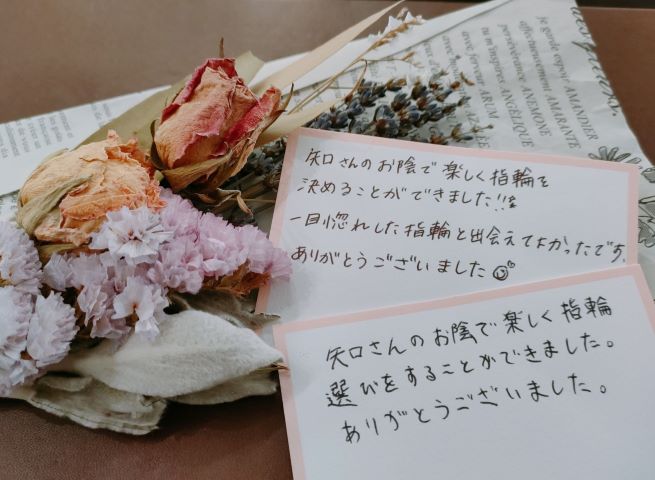 je garde espoir AMANDIER
affectueusement AMARANTE
persévérance ANEMONE
tu m'inspires ANGÉLIQUE
avec ferveur ARUM
矢口さんのお陰で楽しく指輪を
決めることができました!!
一目惚れした指輪と出会えてよかったです。
ありがとうございました
矢口さんのお陰で楽しく指輪
選びをすることができました。
ありがとうございました。